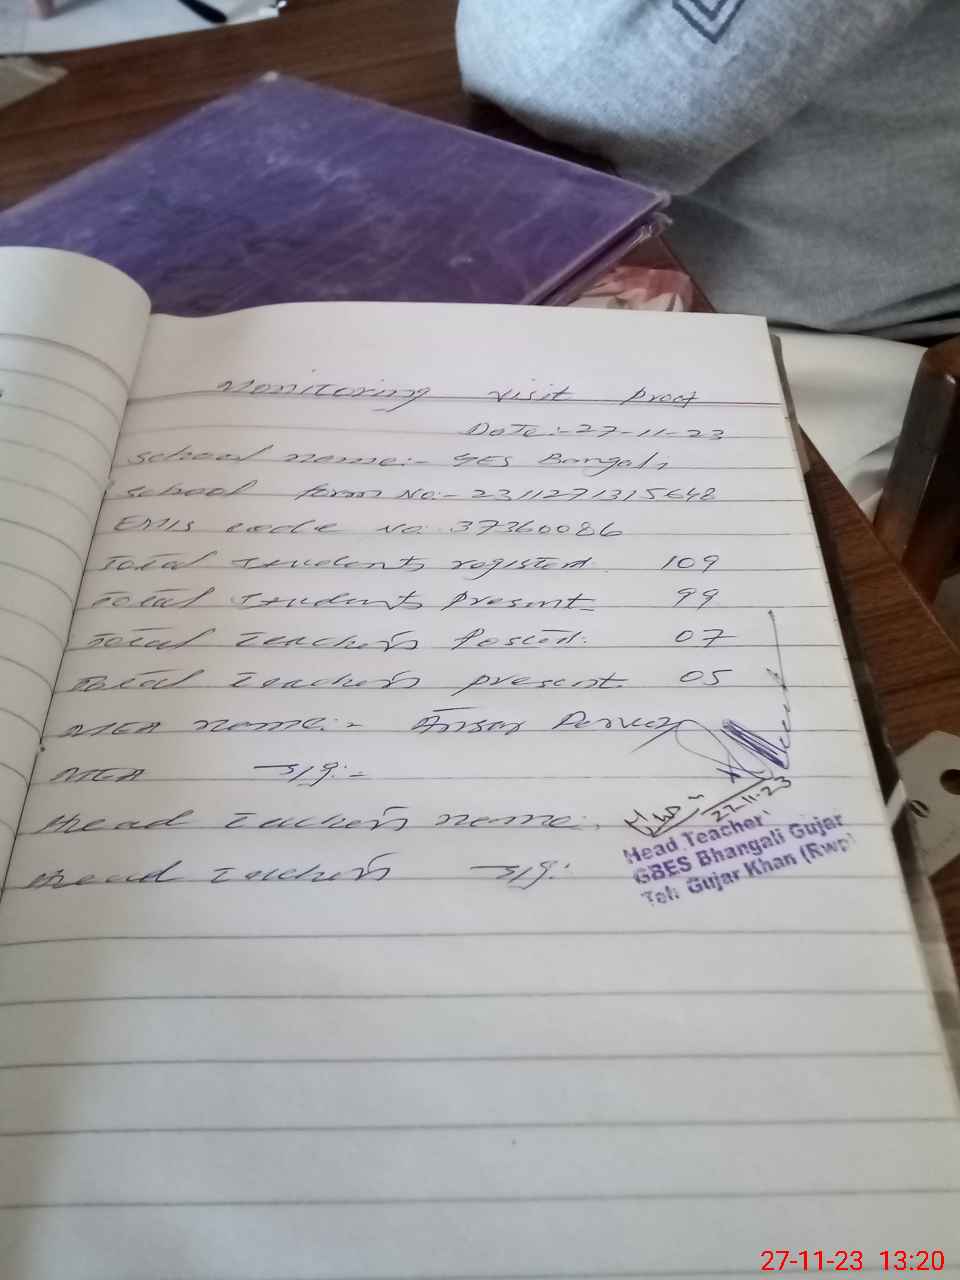 Monitoring visit proof
Date:- 27-11-23
School name:- GES Bangali
School form No:- 2311271315648
EMIS code No: 37360086
Total students registerd: 109
Total students present= 99
Total teachers Posted: 07
Total teachers present 05
MEA name:- Ansar Pervez
MEA sig:-
Head teachers name:
22-11-23
Head teachers sig:
Head Teacher
GBES Bhangali Gujar
Teh Gujar Khan (Rwp)
27-11-23 13:20